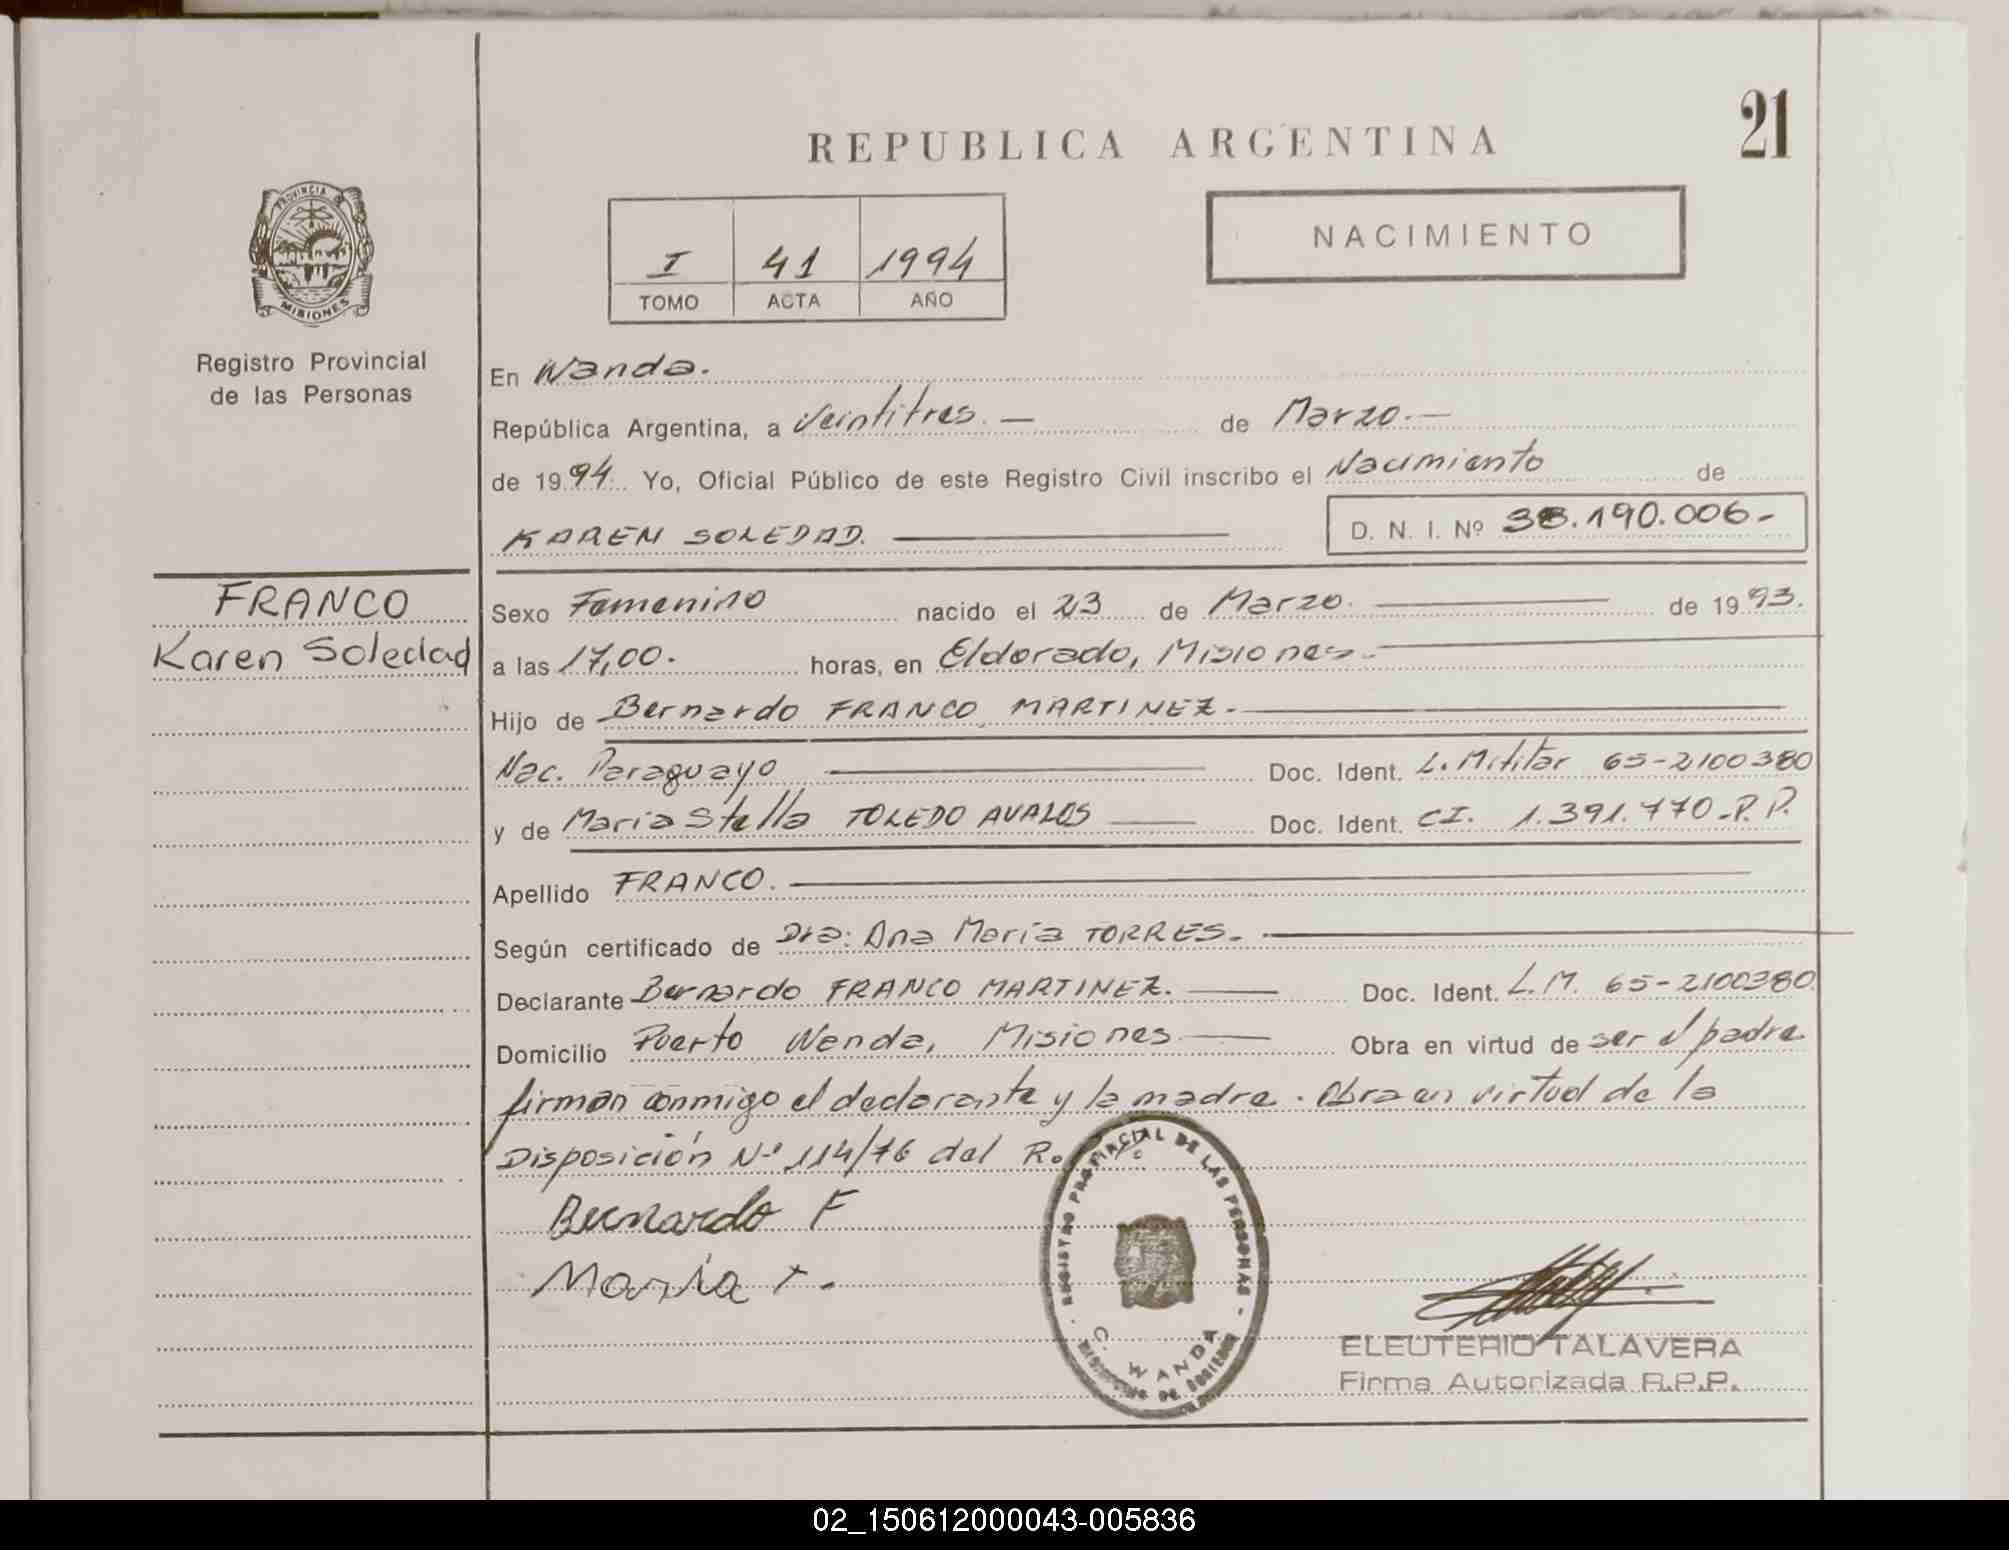 21
REPUBLICA ARGENTINA
NACIMIENTO
PROVINCIA
MISIONES
I 41 1994
TOMO ACTA AÑO
Registro Provincial
de las Personas
FRANCO
Karen Soledad
En Wanda.
República Argentina, a Veintitres. — de Marzo. —
de 1994. Yo, Oficial Público de este Registro Civil inscribo el Nacimiento de
KAREN SOLEDAD. D. N. I. Nº 38.190.006-
Sexo Femenino nacido el 23 de Marzo. de 1993.
a las 17,00. horas, en Eldorado, Misiones.-
Hijo de Bernardo FRANCO MARTINEZ.-
Nac. Paraguayo Doc. Ident. L. Militar 65-2100380
y de Maria Stella TOLEDO AVALOS Doc. Ident. CI. 1.391.770-P.P.
Apellido FRANCO.
Según certificado de Dra: Ana María TORRES.-
Declarante Bernardo FRANCO MARTINEZ. Doc. Ident. L.M. 65-2100380
Domicilio Puerto Wanda, Misiones Obra en virtud de ser el padre
firman conmigo el declarante y la madre. Obra en virtud de la
Disposición Nº 114/76 del R.
Bernardo F
Maria T.
REGISTRO PROVINCIAL DE LAS PERSONAS
C. WANDA
ELEUTERIO TALAVERA
Firma Autorizada R.P.P.
02_150612000043-005836